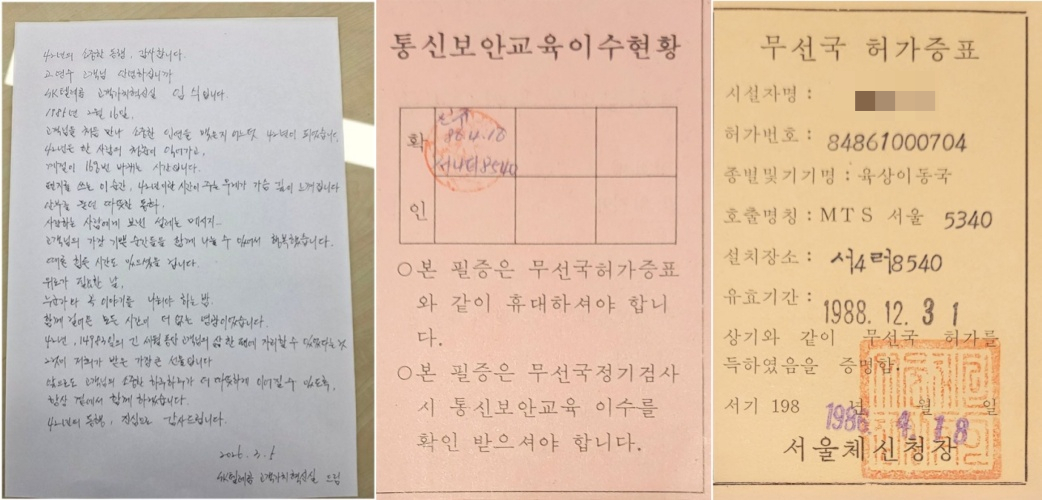 42년의 소중한 동행, 감사합니다.
고객님 안녕하십니까
SK텔레콤 고객가치혁신실 입니다.
1985년 2월 16일,
고객님을 처음 만나 소중한 인연을 맺은지 어느덧 42년이 되었습니다.
42년은 한 사람의 청춘이 익어가고,
계절이 168번 바뀌는 시간입니다.
편지를 쓰는 이 순간, 42년이란 시간이 주는 무게가 가슴 깊이 느껴집니다
안부를 묻던 따뜻한 통화,
사랑하는 사람에게 보낸 설레는 메시지..
고객님의 가장 기쁜 순간들을 함께 나눌 수 있어서 행복했습니다.
때론 힘든 시간도 있으셨을 겁니다.
위로가 필요한 날,
누군가와 꼭 이야기를 나눠야 하는 밤.
함께 걸어온 모든 시간이 더 없는 영광이었습니다.
42년, 14984일의 긴 세월동안 고객님의 삶 한 편에 자리할 수 있었다는 것
그것이 저희가 받은 가장 큰 선물입니다
앞으로도 고객님의 소중한 하루하루가 더 따뜻하게 이어질 수 있도록,
항상 곁에서 함께 하겠습니다.
42년의 동행, 진심으로 감사드립니다.
2026. 3. 5
SK텔레콤 고객가치혁신실 드림
통신보안교육이수현황
확
86.4.18
서4러8540
인
○본 필증은 무선국허가증표
와 같이 휴대하셔야 합니
다.
○본 필증은 무선국정기검사
시 통신보안교육 이수를
확인 받으셔야 합니다.
무선국 허가증표
시설자명 :
허가번호 : 84861000704
종별및기기명 : 육상이동국
호출명칭 : MTS 서울 5340
설치장소 : 서4러8540
유효기간 : 1988. 12. 31
상기와 같이 무선국 허가를
득하였음을 증명함.
서기 198 년 월 일
1986. 4. 18
서울체신청장